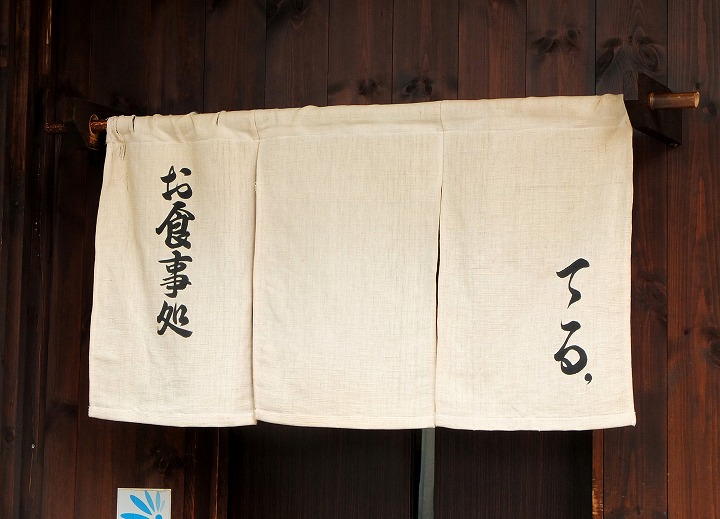 お食事処
てる,